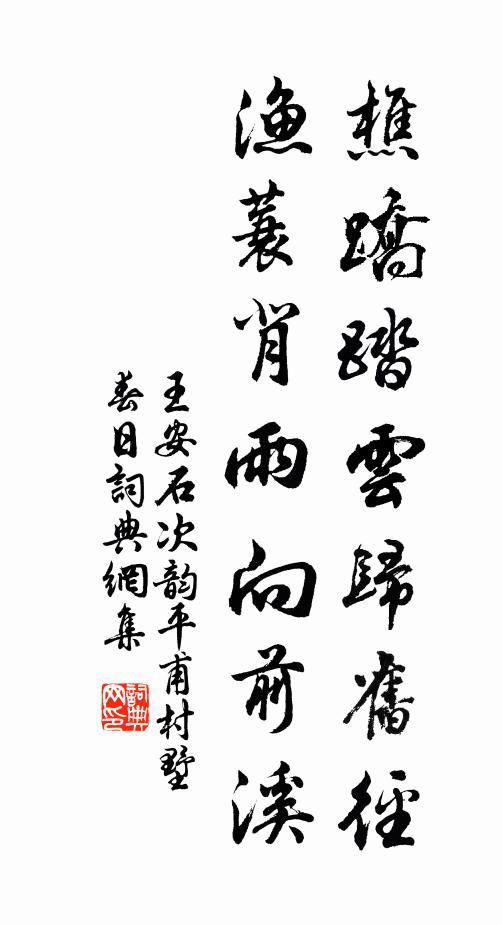 樵蹻踏雲歸舊徑
漁蓑背雨向前溪
王安石次韵平甫村墅
春日詞典網集
詞典网印